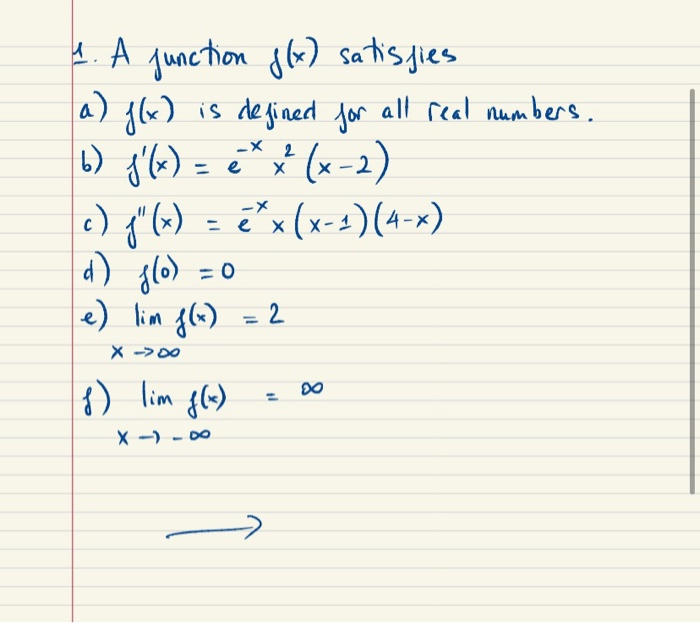 1. A function f(x) satisfies
a) f(x) is defined for all real numbers.
b) f'(x) = e^-x x^2 (x-2)
c) f"(x) = e^-x x (x-1)(4-x)
d) f(0) = 0
e) lim f(x) = 2
x → ∞
f) lim f(x) = ∞
x → -∞